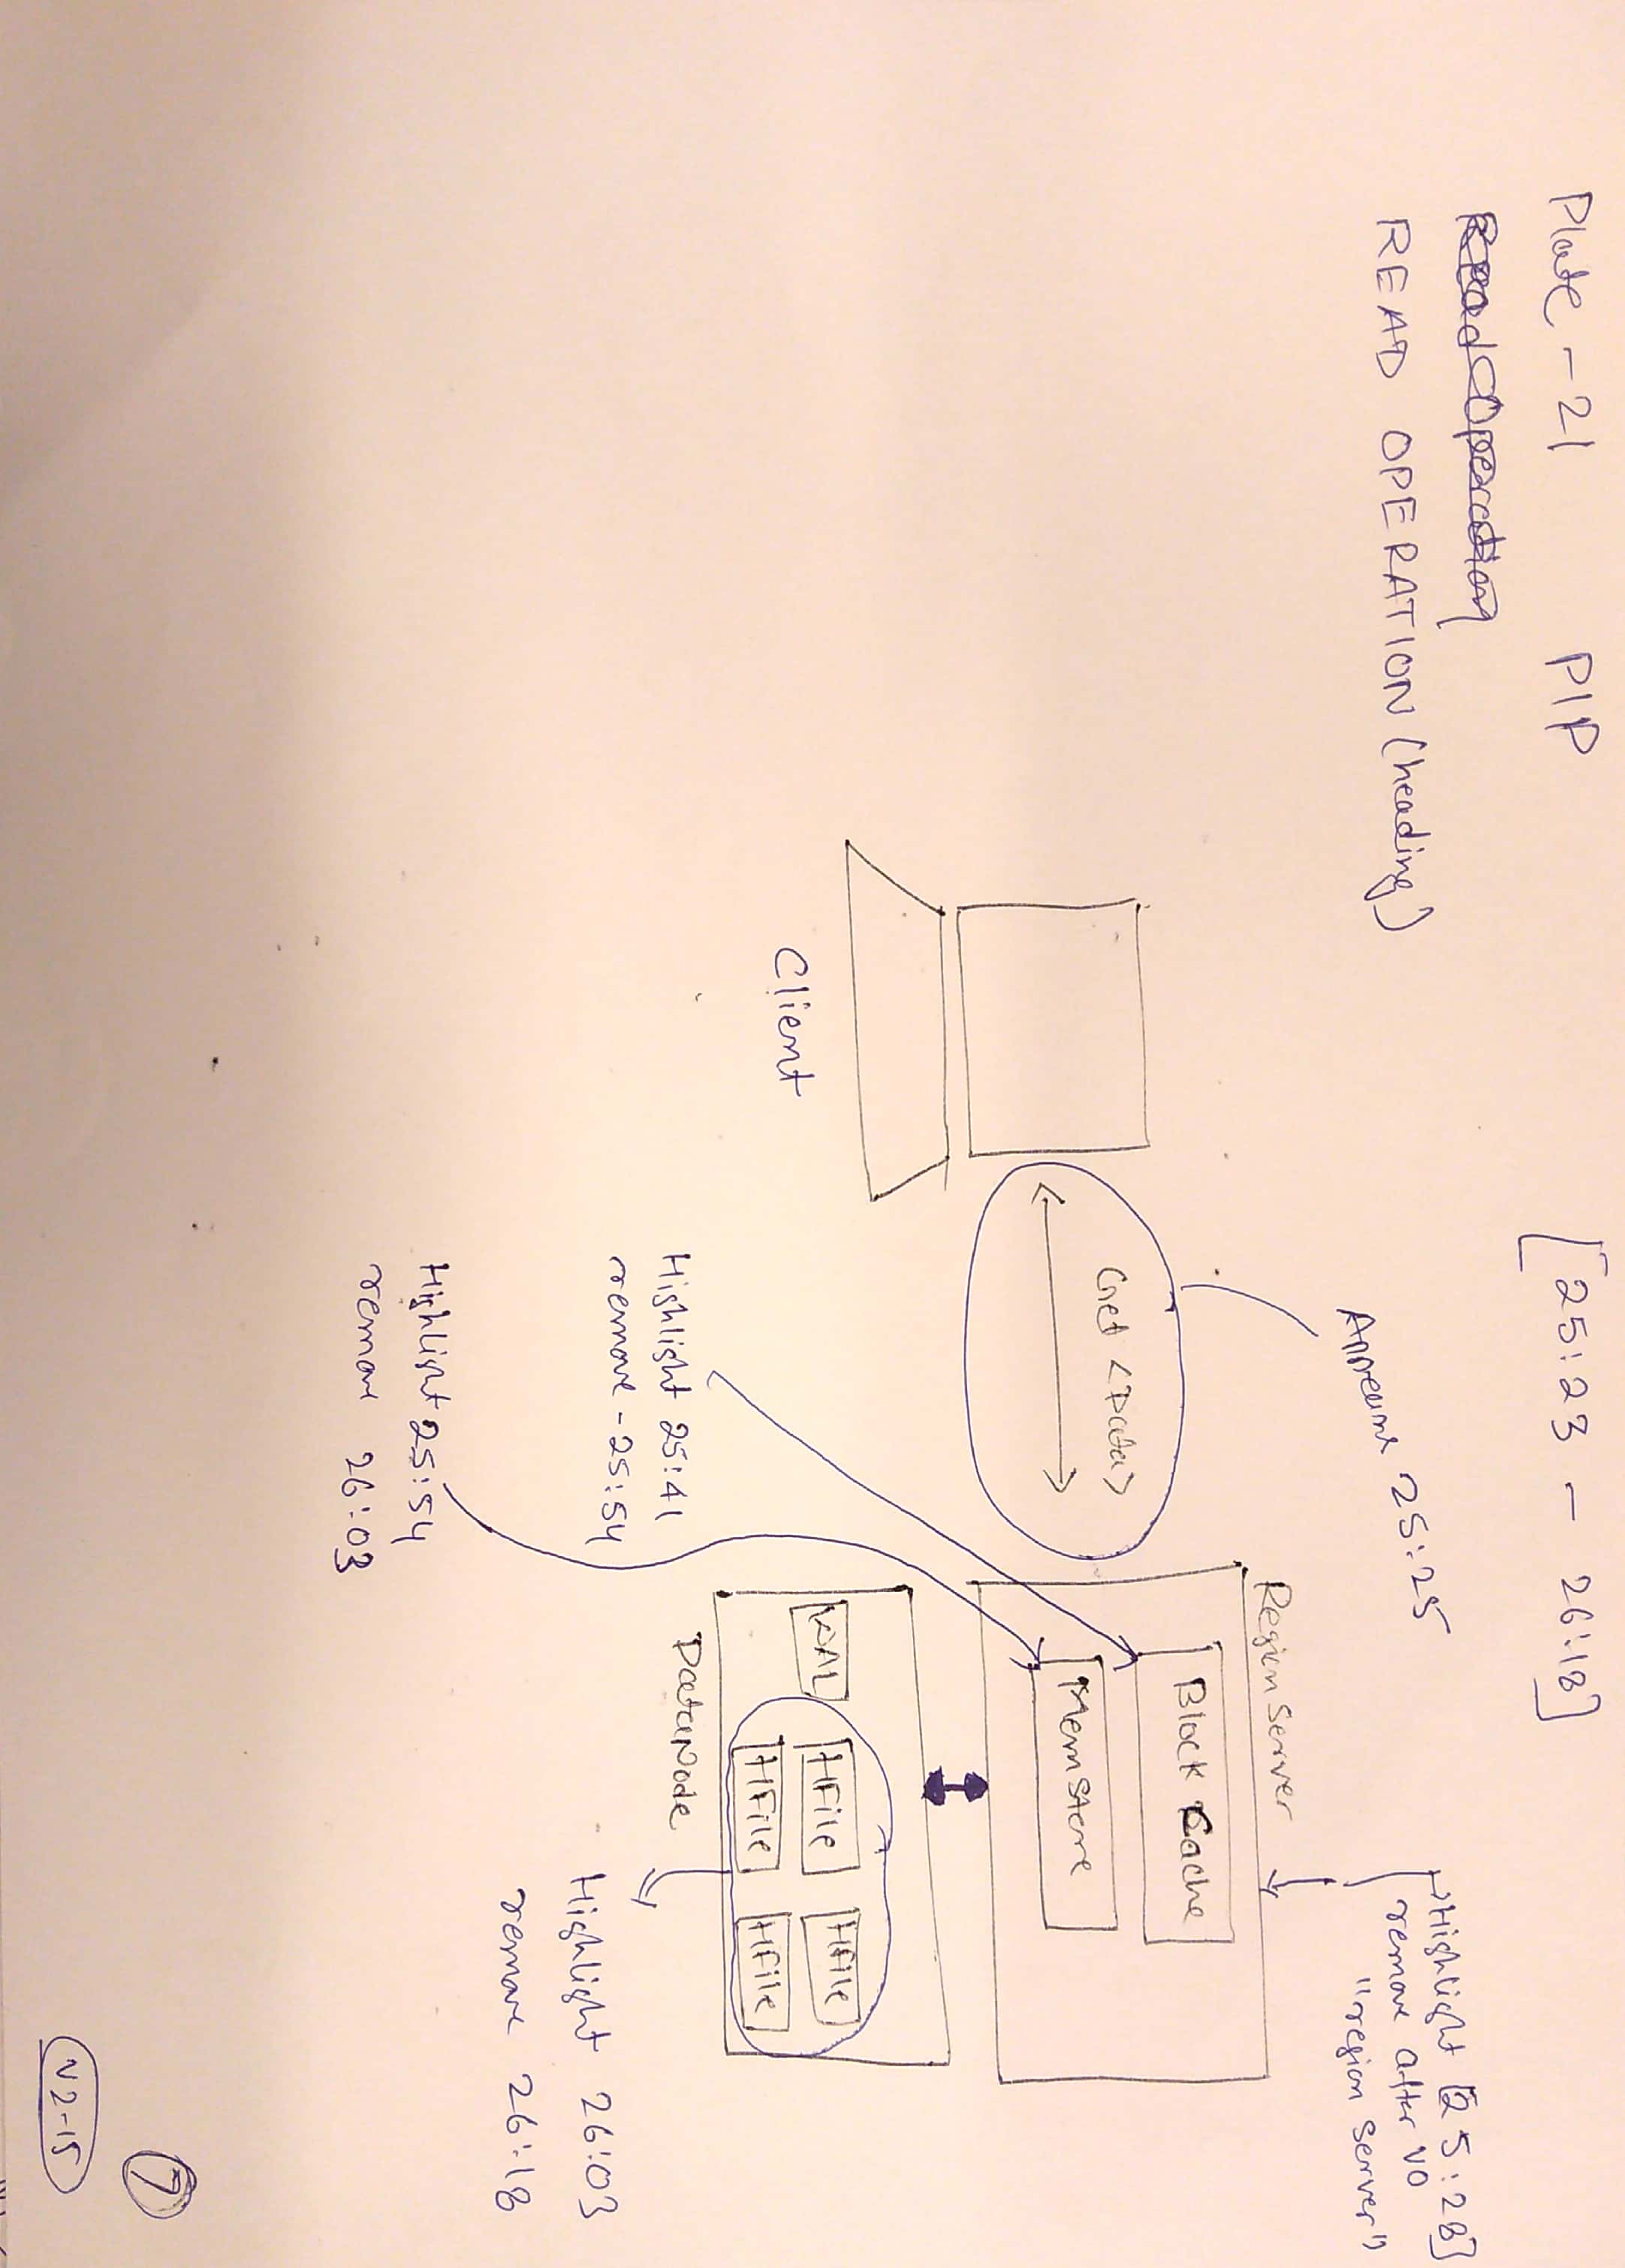 Plate - 21 PIP [25:23 - 26:18]
Read Operation
READ OPERATION (heading)
Appears 25:25
Highlight [25:28]
remove after VO
"region server")
Region Server
Block Cache
Get <Data>
MemStore
WAL HFile HFile
HFile HFile
Client
DataNode
Highlight 25:41
remove - 25:54
Highlight 26:03
remove 26:18
Highlight 25:54
remove 26:03
7
V2-15